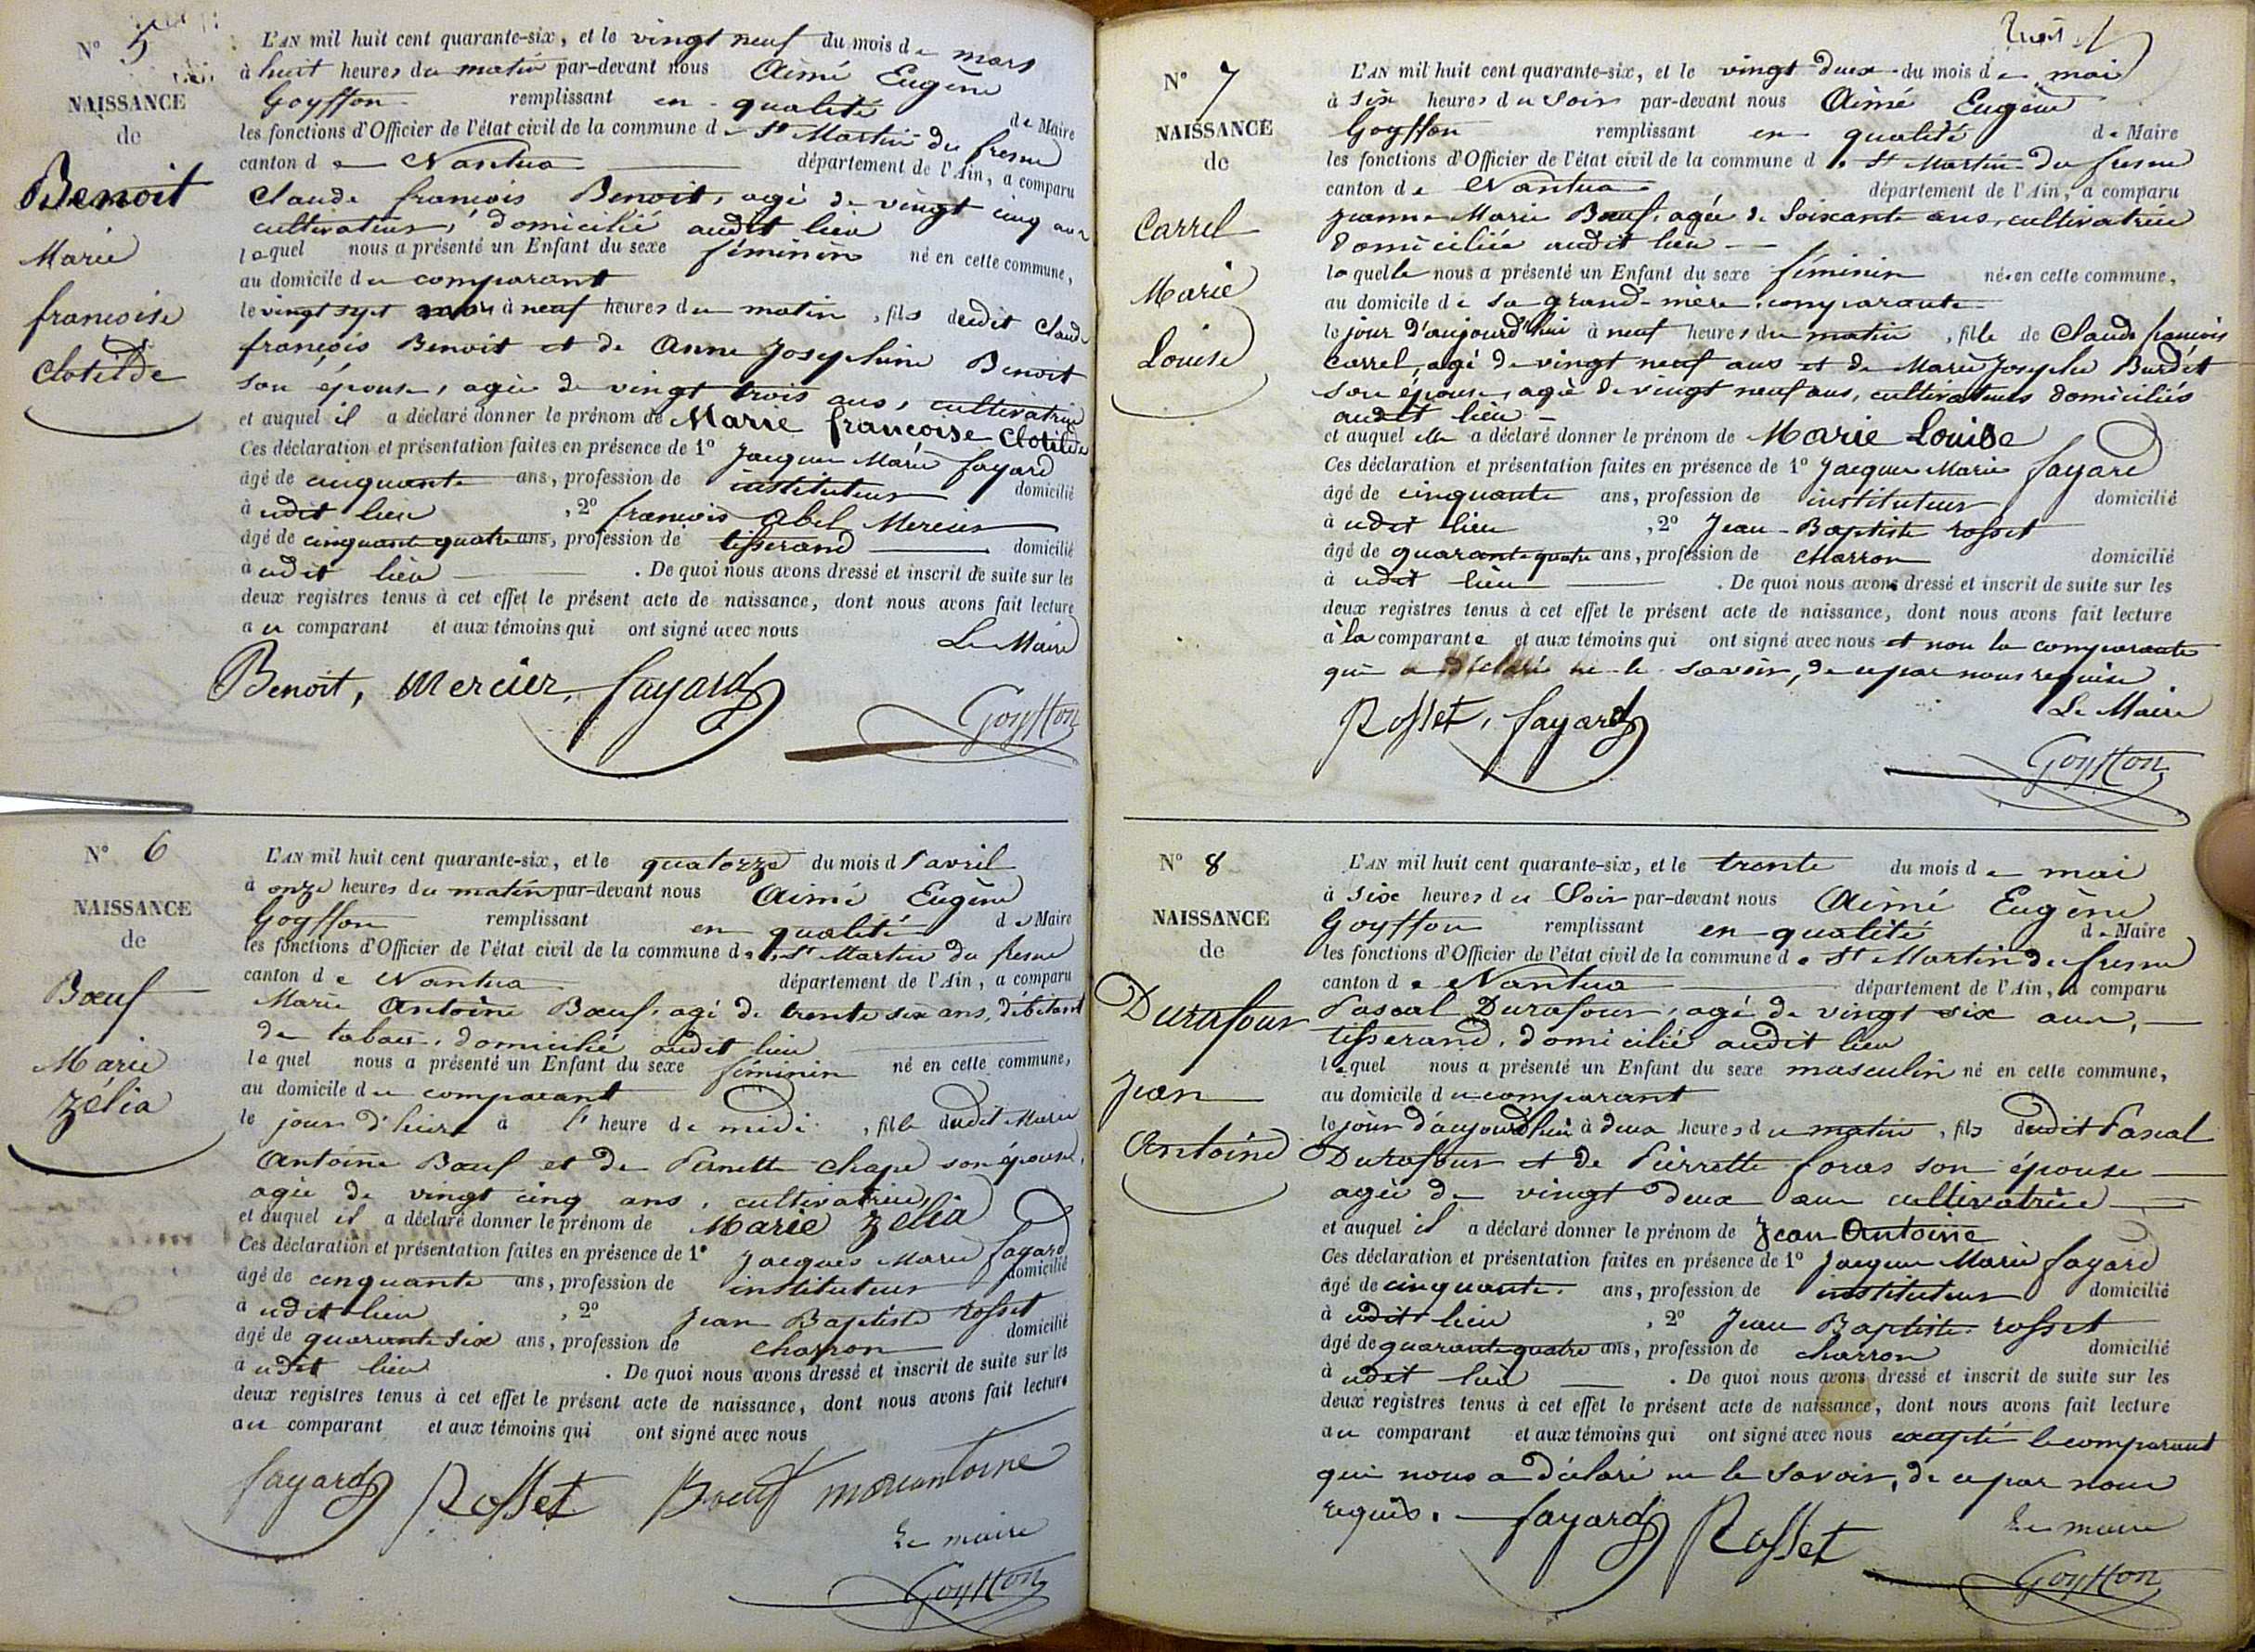 N° 5
NAISSANCE
de
Benoit
Marie
françoise
Clotilde
L'AN mil huit cent quarante-six, et le vingt neuf du mois de mars
à huit heures du matin par-devant nous Aimé Eugène
Goyffon remplissant en qualité de Maire
les fonctions d'Officier de l'état civil de la commune de St Martin du fresne
canton de Nantua département de l'Ain, a comparu
Claude françois Benoit, agé de vingt cinq ans
cultivateur, domicilié audit lieu
lequel nous a présenté un Enfant du sexe féminin né en cette commune,
au domicile du comparant
le vingt sept mars à neuf heures du matin, fils dudit Claude
françois Benoit et de Anne Josephine Benoit
son épouse, agée de vingt trois ans, cultivatrice
et auquel il a déclaré donner le prénom de Marie françoise Clotilde
Ces déclaration et présentation faites en présence de 1° Jacques Marie fayard
âgé de cinquante ans, profession de instituteur domicilié
à udit lieu, 2° françois Abel Mercier
âgé de cinquante quatre ans, profession de tisserand domicilié
à udit lieu. De quoi nous avons dressé et inscrit de suite sur les
deux registres tenus à cet effet le présent acte de naissance, dont nous avons fait lecture
au comparant et aux témoins qui ont signé avec nous
Le Maire
Benoit, Mercier, fayard
Goyffon
N° 6
NAISSANCE
de
Bœuf
Marie
zélia
L'AN mil huit cent quarante-six, et le quatorze du mois d'avril
à onze heures du matin par-devant nous Aimé Eugène
Goyffon remplissant en qualité de Maire
les fonctions d'Officier de l'état civil de la commune de St Martin du fresne
canton de Nantua département de l'Ain, a comparu
Marie Antoine Bœuf, agé de trente six ans, débitant
de tabac, domicilié audit lieu
lequel nous a présenté un Enfant du sexe féminin né en cette commune,
au domicile du comparant
le jour d'hier à l'heure de midi, fille dudit Marie
Antoine Bœuf et de Pernette Chapé son épouse,
agée de vingt cinq ans, cultivatrice
et auquel il a déclaré donner le prénom de Marie zélia
Ces déclaration et présentation faites en présence de 1° Jacques Marie fayard
âgé de cinquante ans, profession de instituteur domicilié
à udit lieu, 2° Jean Baptiste rosset
âgé de quarante six ans, profession de charron domicilié
à udit lieu. De quoi nous avons dressé et inscrit de suite sur les
deux registres tenus à cet effet le présent acte de naissance, dont nous avons fait lecture
au comparant et aux témoins qui ont signé avec nous
fayard Rosset Bœuf marieantoine
Le maire
Goyffon
N° 7
NAISSANCE
de
Carrel
Marie
Louise
L'AN mil huit cent quarante-six, et le vingt deux du mois de mai
à six heures du soir par-devant nous Aimé Eugène
Goyffon remplissant en qualité de Maire
les fonctions d'Officier de l'état civil de la commune de St Martin du fresne
canton de Nantua département de l'Ain, a comparu
Jeanne Marie Bœuf, agée de soixante ans, cultivatrice
domiciliée audit lieu
laquelle nous a présenté un Enfant du sexe féminin née en cette commune,
au domicile de sa grand-mère comparante
le jour d'aujourd'hui à neuf heures du matin, fille de Claude françois
Carrel, agé de vingt neuf ans et de Marie Josephe Burdet
son épouse, agée de vingt neuf ans, cultivateurs domiciliés
audit lieu
et auquel elle a déclaré donner le prénom de Marie Louise
Ces déclaration et présentation faites en présence de 1° Jacques Marie fayard
âgé de cinquante ans, profession de instituteur domicilié
à udit lieu, 2° Jean-Baptiste rosset
âgé de quarante quatre ans, profession de charron domicilié
à udit lieu. De quoi nous avons dressé et inscrit de suite sur les
deux registres tenus à cet effet le présent acte de naissance, dont nous avons fait lecture
à la comparante et aux témoins qui ont signé avec nous et non la comparante
qui a déclaré ne le savoir, de ce par nous requise
Le Maire
Rosset, fayard
Goyffon
N° 8
NAISSANCE
de
Durafour
Jean
Antoine
L'AN mil huit cent quarante-six, et le trente du mois de mai
à six heures du Soir par-devant nous Aimé Eugène
Goyffon remplissant en qualité de Maire
les fonctions d'Officier de l'état civil de la commune de St Martin du fresne
canton de Nantua département de l'Ain, a comparu
Pascal Durafour, agé de vingt six ans,
tisserand, domicilié audit lieu
lequel nous a présenté un Enfant du sexe masculin né en cette commune,
au domicile du comparant
le jour d'aujourd'hui à deux heures du matin, fils dudit Pascal
Durafour et de Pierrette foras son épouse
agée de vingt deux ans cultivatrice
et auquel il a déclaré donner le prénom de Jean Antoine
Ces déclaration et présentation faites en présence de 1° Jacques Marie fayard
âgé de cinquante ans, profession de instituteur domicilié
à udit lieu, 2° Jean Baptiste rosset
âgé de quarante quatre ans, profession de charron domicilié
à udit lieu. De quoi nous avons dressé et inscrit de suite sur les
deux registres tenus à cet effet le présent acte de naissance, dont nous avons fait lecture
au comparant et aux témoins qui ont signé avec nous excepté le comparant
qui nous a déclaré ne le savoir, de ce par nous
requis. fayard Rosset
Le maire
Goyffon